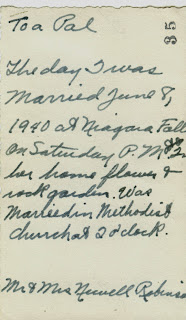 To a Pal
35
The day I was
Married June 8,
1940 at Niagara Fall
On Saturday P.M.
her home flower &
rock garden. Was
Married in Methodist
church at 2 o'clock.
Mr & Mrs Newell Robinson